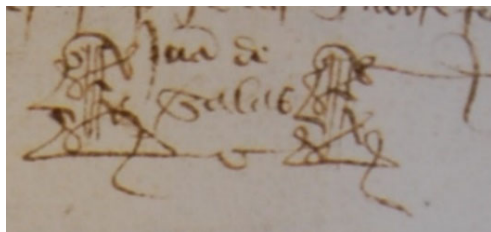 Juā de
Salas